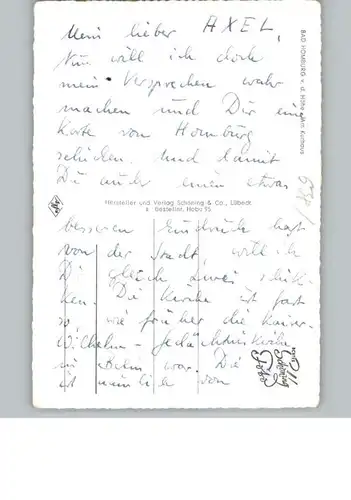 Mein lieber AXEL,
Nun will ich doch
mein Versprechen wahr
machen und Dir eine
Karte von Homburg
schicken. Und damit
Du auch einen etwas
Hersteller und Verlag Schöning & Co., Lübeck
Bestellnr. Hobu 15
besseren Eindruck hast
von der Stadt, will ich
Dir gleich zwei schik-
ken. Die Kirche ist fast
so, wie früher die Kaiser-
Wilhelm-Gedächtniskirche
in Berlin war. Die
ist nämlich von
BAD HOMBURG v. d. Höhe Am Kurhaus